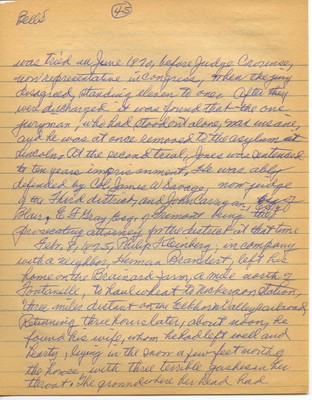 Bell's
45
was tried in June 1870, before Judge Crounse,
now representative in Congress, when the jury
disagreed, standing eleven to one. After they
were discharged it was found that the one
juryman, who had stood out alone, was insane,
and he was at once removed to the asylum at
Lincoln. At the second trial, Jones was sentenced
to ten years imprisonment. He was ably
defended by Col. James W Savage, now judge
of the Third district, and John Carrigan, Esq of
Blair, E F Gray, Esq. of Fremont being the
prosecuting attorney for the district at that time
Feb. 8, 1875, Philip Kleinberg, in company
with a neighbor, Herman Brandert, left his
home on the Brainard farm, a mile north of
Fontenelle, to haul wheat to Nickerson Station,
three miles distant on the Elkhorn Valley Railroad,
Returning three hours later, about noon, he
found his wife, whom he had left well and
hearty, lying in the snow a few feet north of
the house, with three terrible gashes in her
throat. The ground where her head had